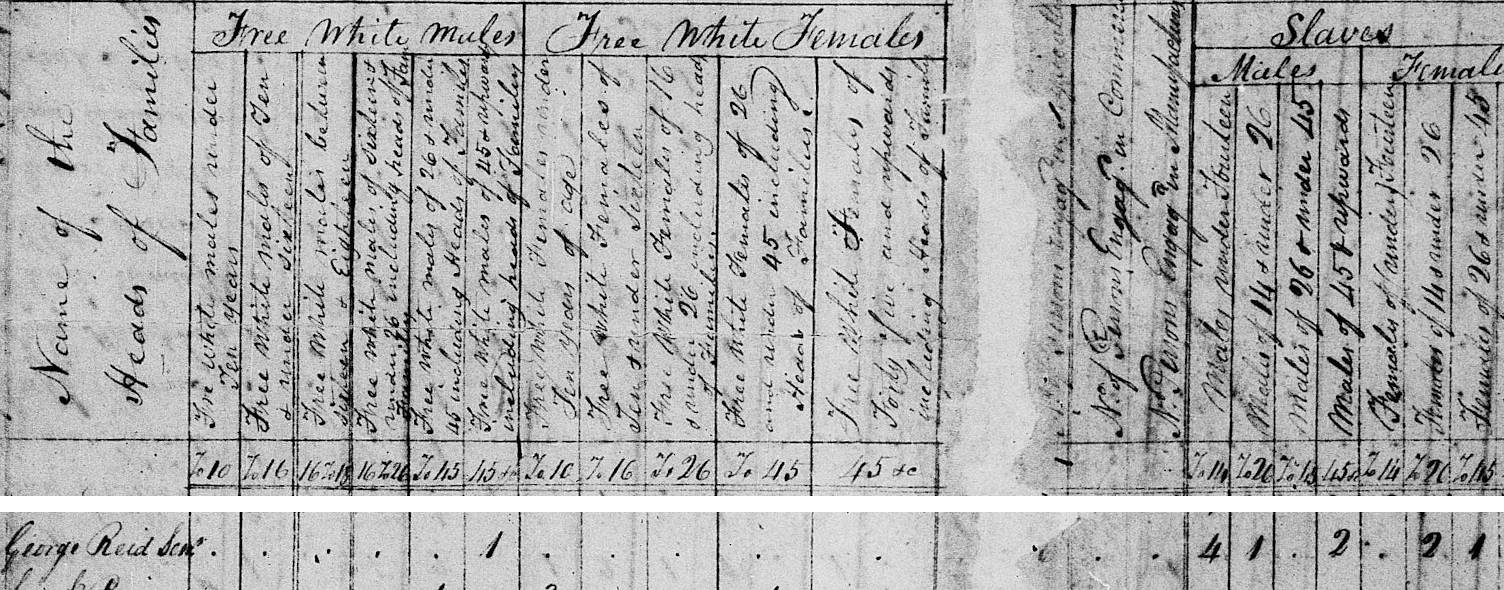 Free White Males
Free White Females
Slaves
Males
Females
Name of the
Heads of Families
Free white males under
Ten years
Free White males of Ten
& under sixteen
Free White males between
Sixteen & Eighteen
Free White males of sixteen &
under 26 including heads of
Free white males of 26 & under
45 including Heads of Families
Free White males of 45 & upwards
including heads of Families
Free White Females under
Ten years of age
Free White Females of
Ten & under Sixteen
Free White Females of 16
& under 26 including heads
of Families
Free White Females of 26
and under 45 including
Heads of Families
Free White Females of
Forty five and upwards
including Heads of Family
No. of Persons Engag.d in Commerce
No. Persons Engag.d in Manufactures
Males under Fourteen
Males of 14 & under 26
Males of 26 & under 45
Males of 45 & upwards
Females of under Fourteen
Females of 14 & under 26
Females of 26 & under 45
To 10 To 16 16 To 18 16 To 26 To 45 45 &c To 10 To 16 To 26 To 45 45 &c To 14 To 26 To 45 45 &c To 14 To 26 To 45
George Reid Senr . . . . . 1 . . . . . . . 4 1 . 2 . 2 1